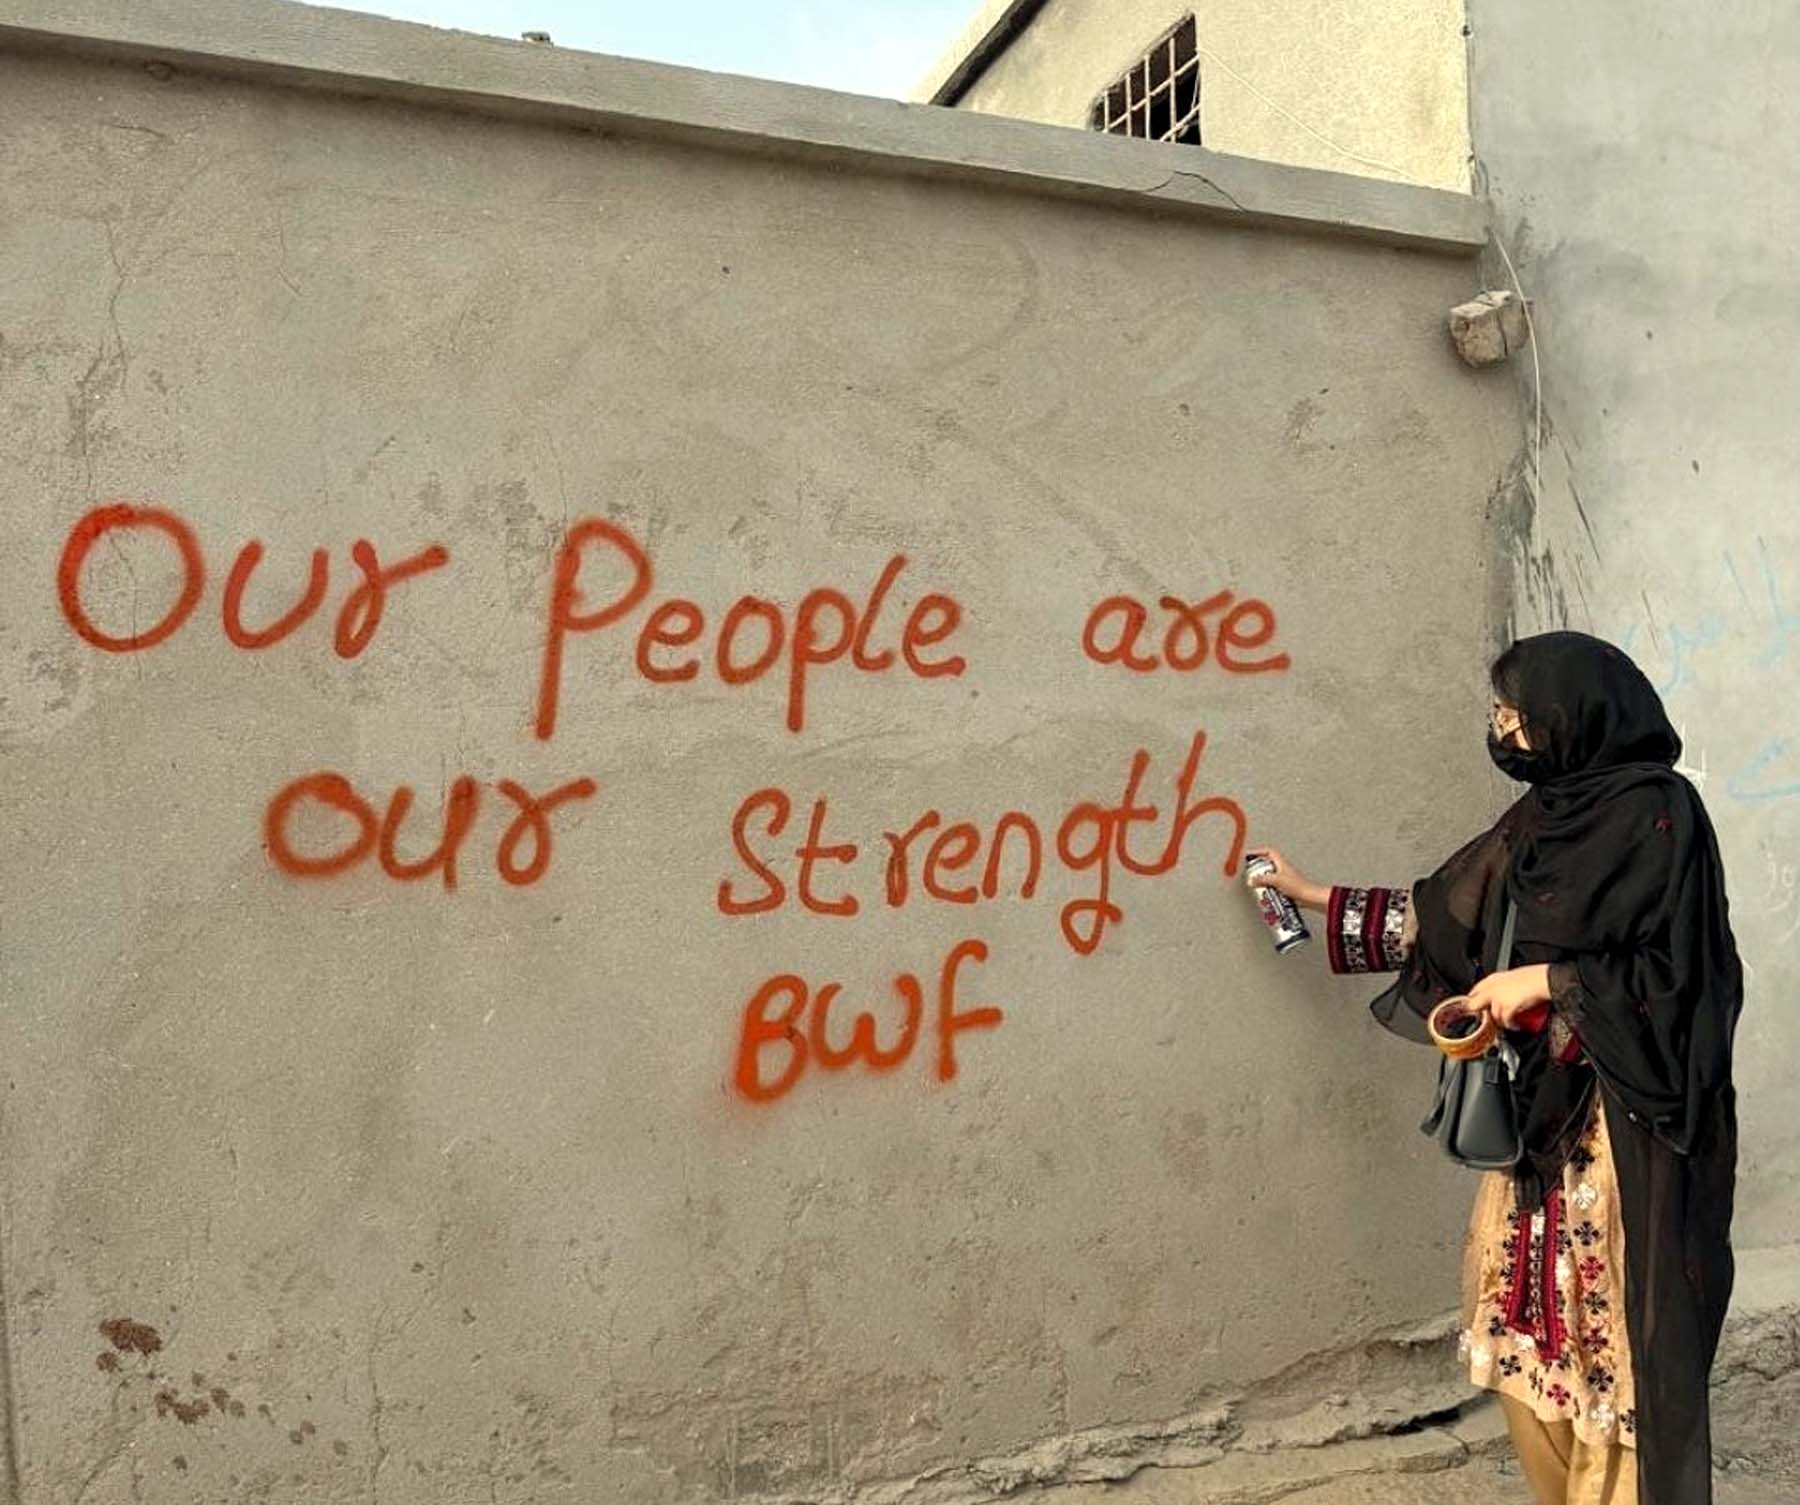 Our People are
our Strength
BWF